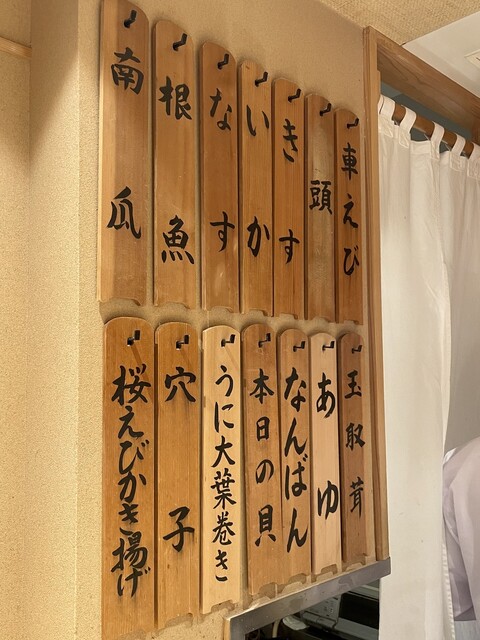 車えび
頭
きす
いか
なす
根魚
南瓜
玉取茸
あゆ
なんばん
本日の貝
うに大葉巻き
穴子
桜えびかき揚げ